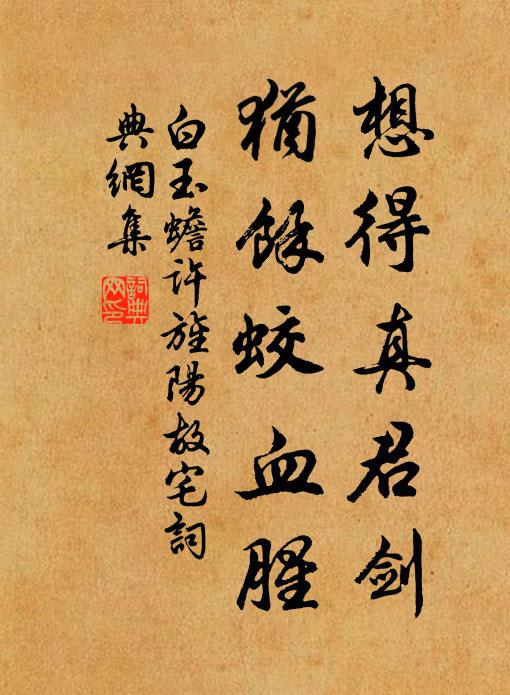 想得真君剑
犹馀蛟血腥
白玉蟾许旌阳故宅词
典網集
詞典
网印